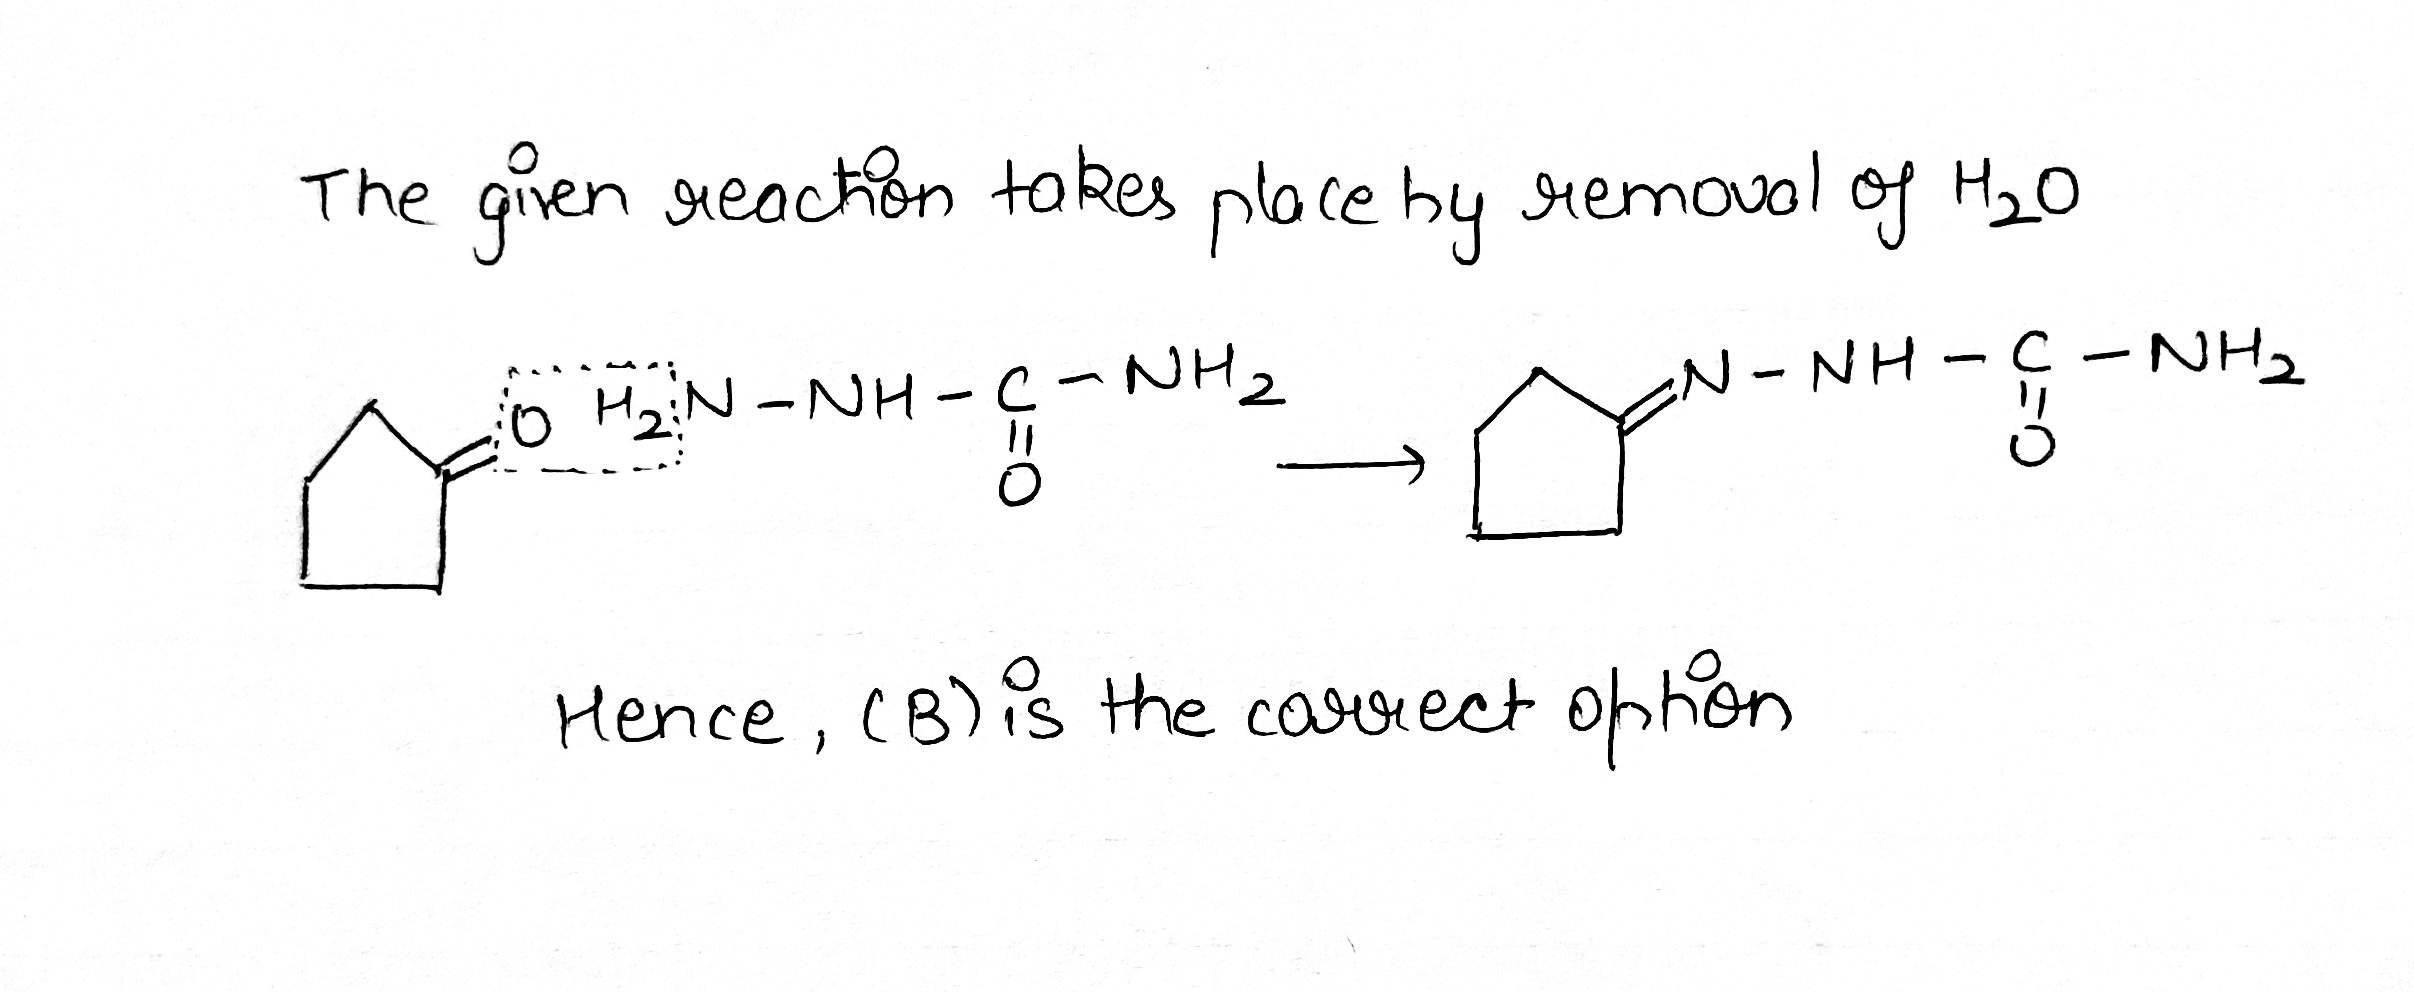 The given reaction takes place by removal of H₂O
O H₂N - NH - C - NH₂ → N - NH - C - NH₂
O O
Hence, (B) is the correct option